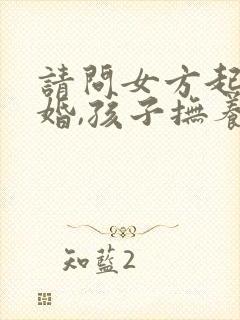 請問女方起
婚,孩子撫養
知藍2